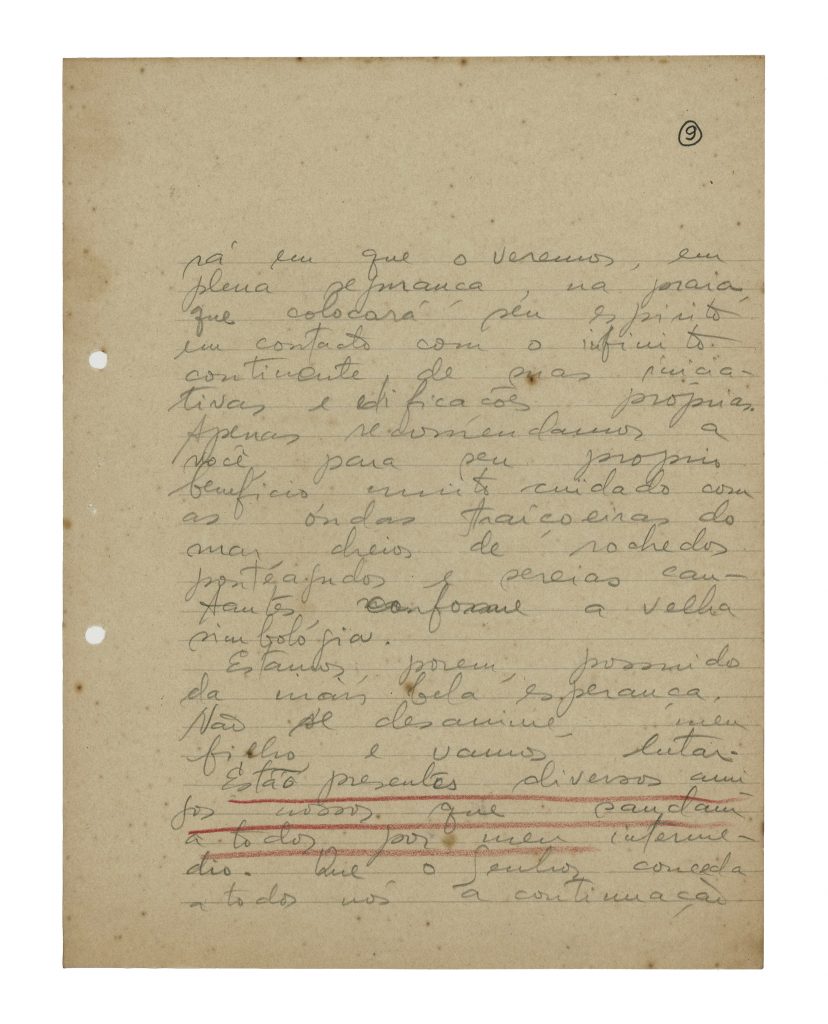 9
rá em que o veremos, em
plena segurança, na praia
que colocará seu espirito
em contacto com o infinito
continente, de suas inicia-
tivas e edificações próprias.
Apenas recomendamos a
você para seu proprio
beneficio muito cuidado com
as óndas traiçoeiras do
mar cheios de rochedos
pontéagudos e sereias can-
tantes conforme a velha
simbológia.
Estamos, porem, possuido
da mais bela esperança.
Não se desanime meu
filho e vamos lutar.
Estão presentes diversos ami
gos nossos que saudam
a todos por meu interme-
dio. Que o Senhor conceda
a todos nós a continuação